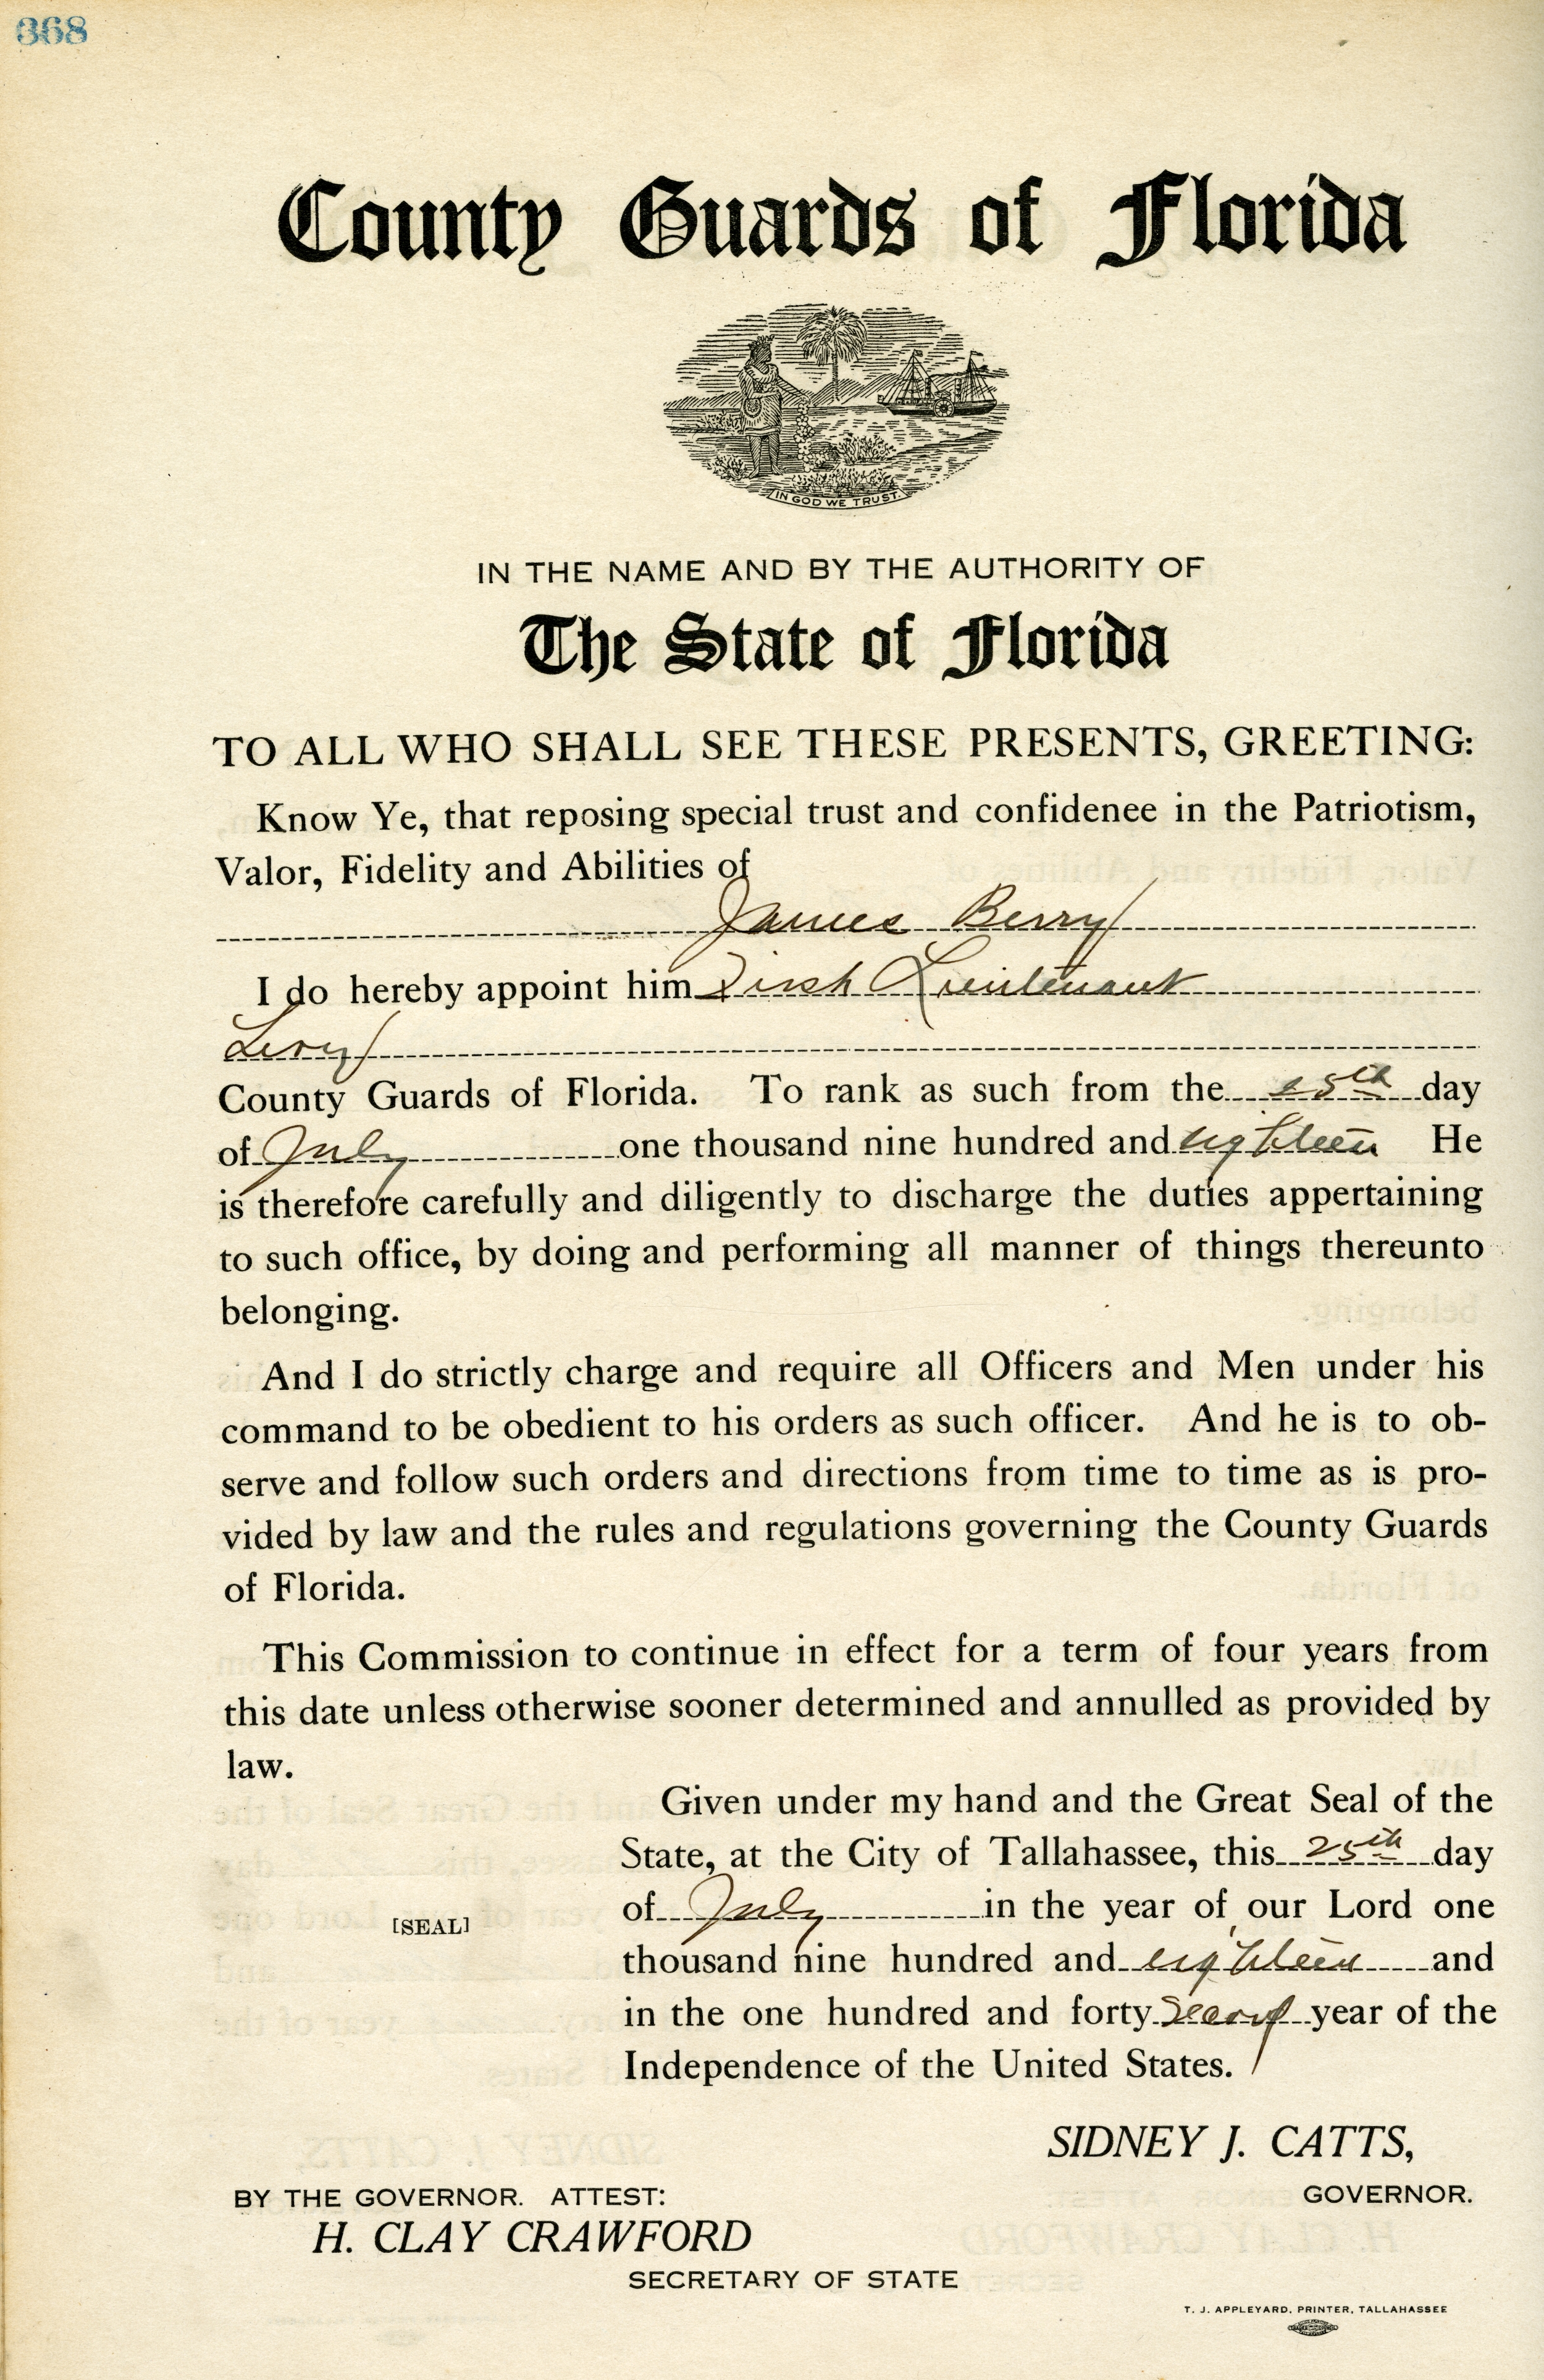 368
County Guards of Florida
IN GOD WE TRUST.
IN THE NAME AND BY THE AUTHORITY OF
The State of Florida
TO ALL WHO SHALL SEE THESE PRESENTS, GREETING:
Know Ye, that reposing special trust and confidenee in the Patriotism,
Valor, Fidelity and Abilities of
James Berry
I do hereby appoint him First Lieutenant
Levy
County Guards of Florida. To rank as such from the 25th day
of July one thousand nine hundred and eighteen He
is therefore carefully and diligently to discharge the duties appertaining
to such office, by doing and performing all manner of things thereunto
belonging.
And I do strictly charge and require all Officers and Men under his
command to be obedient to his orders as such officer. And he is to ob-
serve and follow such orders and directions from time to time as is pro-
vided by law and the rules and regulations governing the County Guards
of Florida.
This Commission to continue in effect for a term of four years from
this date unless otherwise sooner determined and annulled as provided by
law.
Given under my hand and the Great Seal of the
State, at the City of Tallahassee, this 25th day
of July in the year of our Lord one
[SEAL]
thousand nine hundred and eighteen and
in the one hundred and forty second year of the
Independence of the United States.
SIDNEY J. CATTS,
GOVERNOR.
BY THE GOVERNOR. ATTEST:
H. CLAY CRAWFORD
SECRETARY OF STATE
T. J. APPLEYARD, PRINTER, TALLAHASSEE